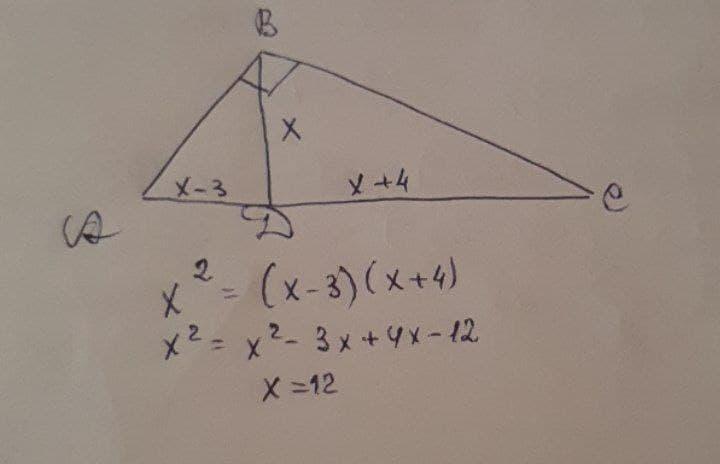 B
x
x-3
x+4
A
D
C
x² = (x-3)(x+4)
x² = x² - 3x + 4x - 12
x = 12